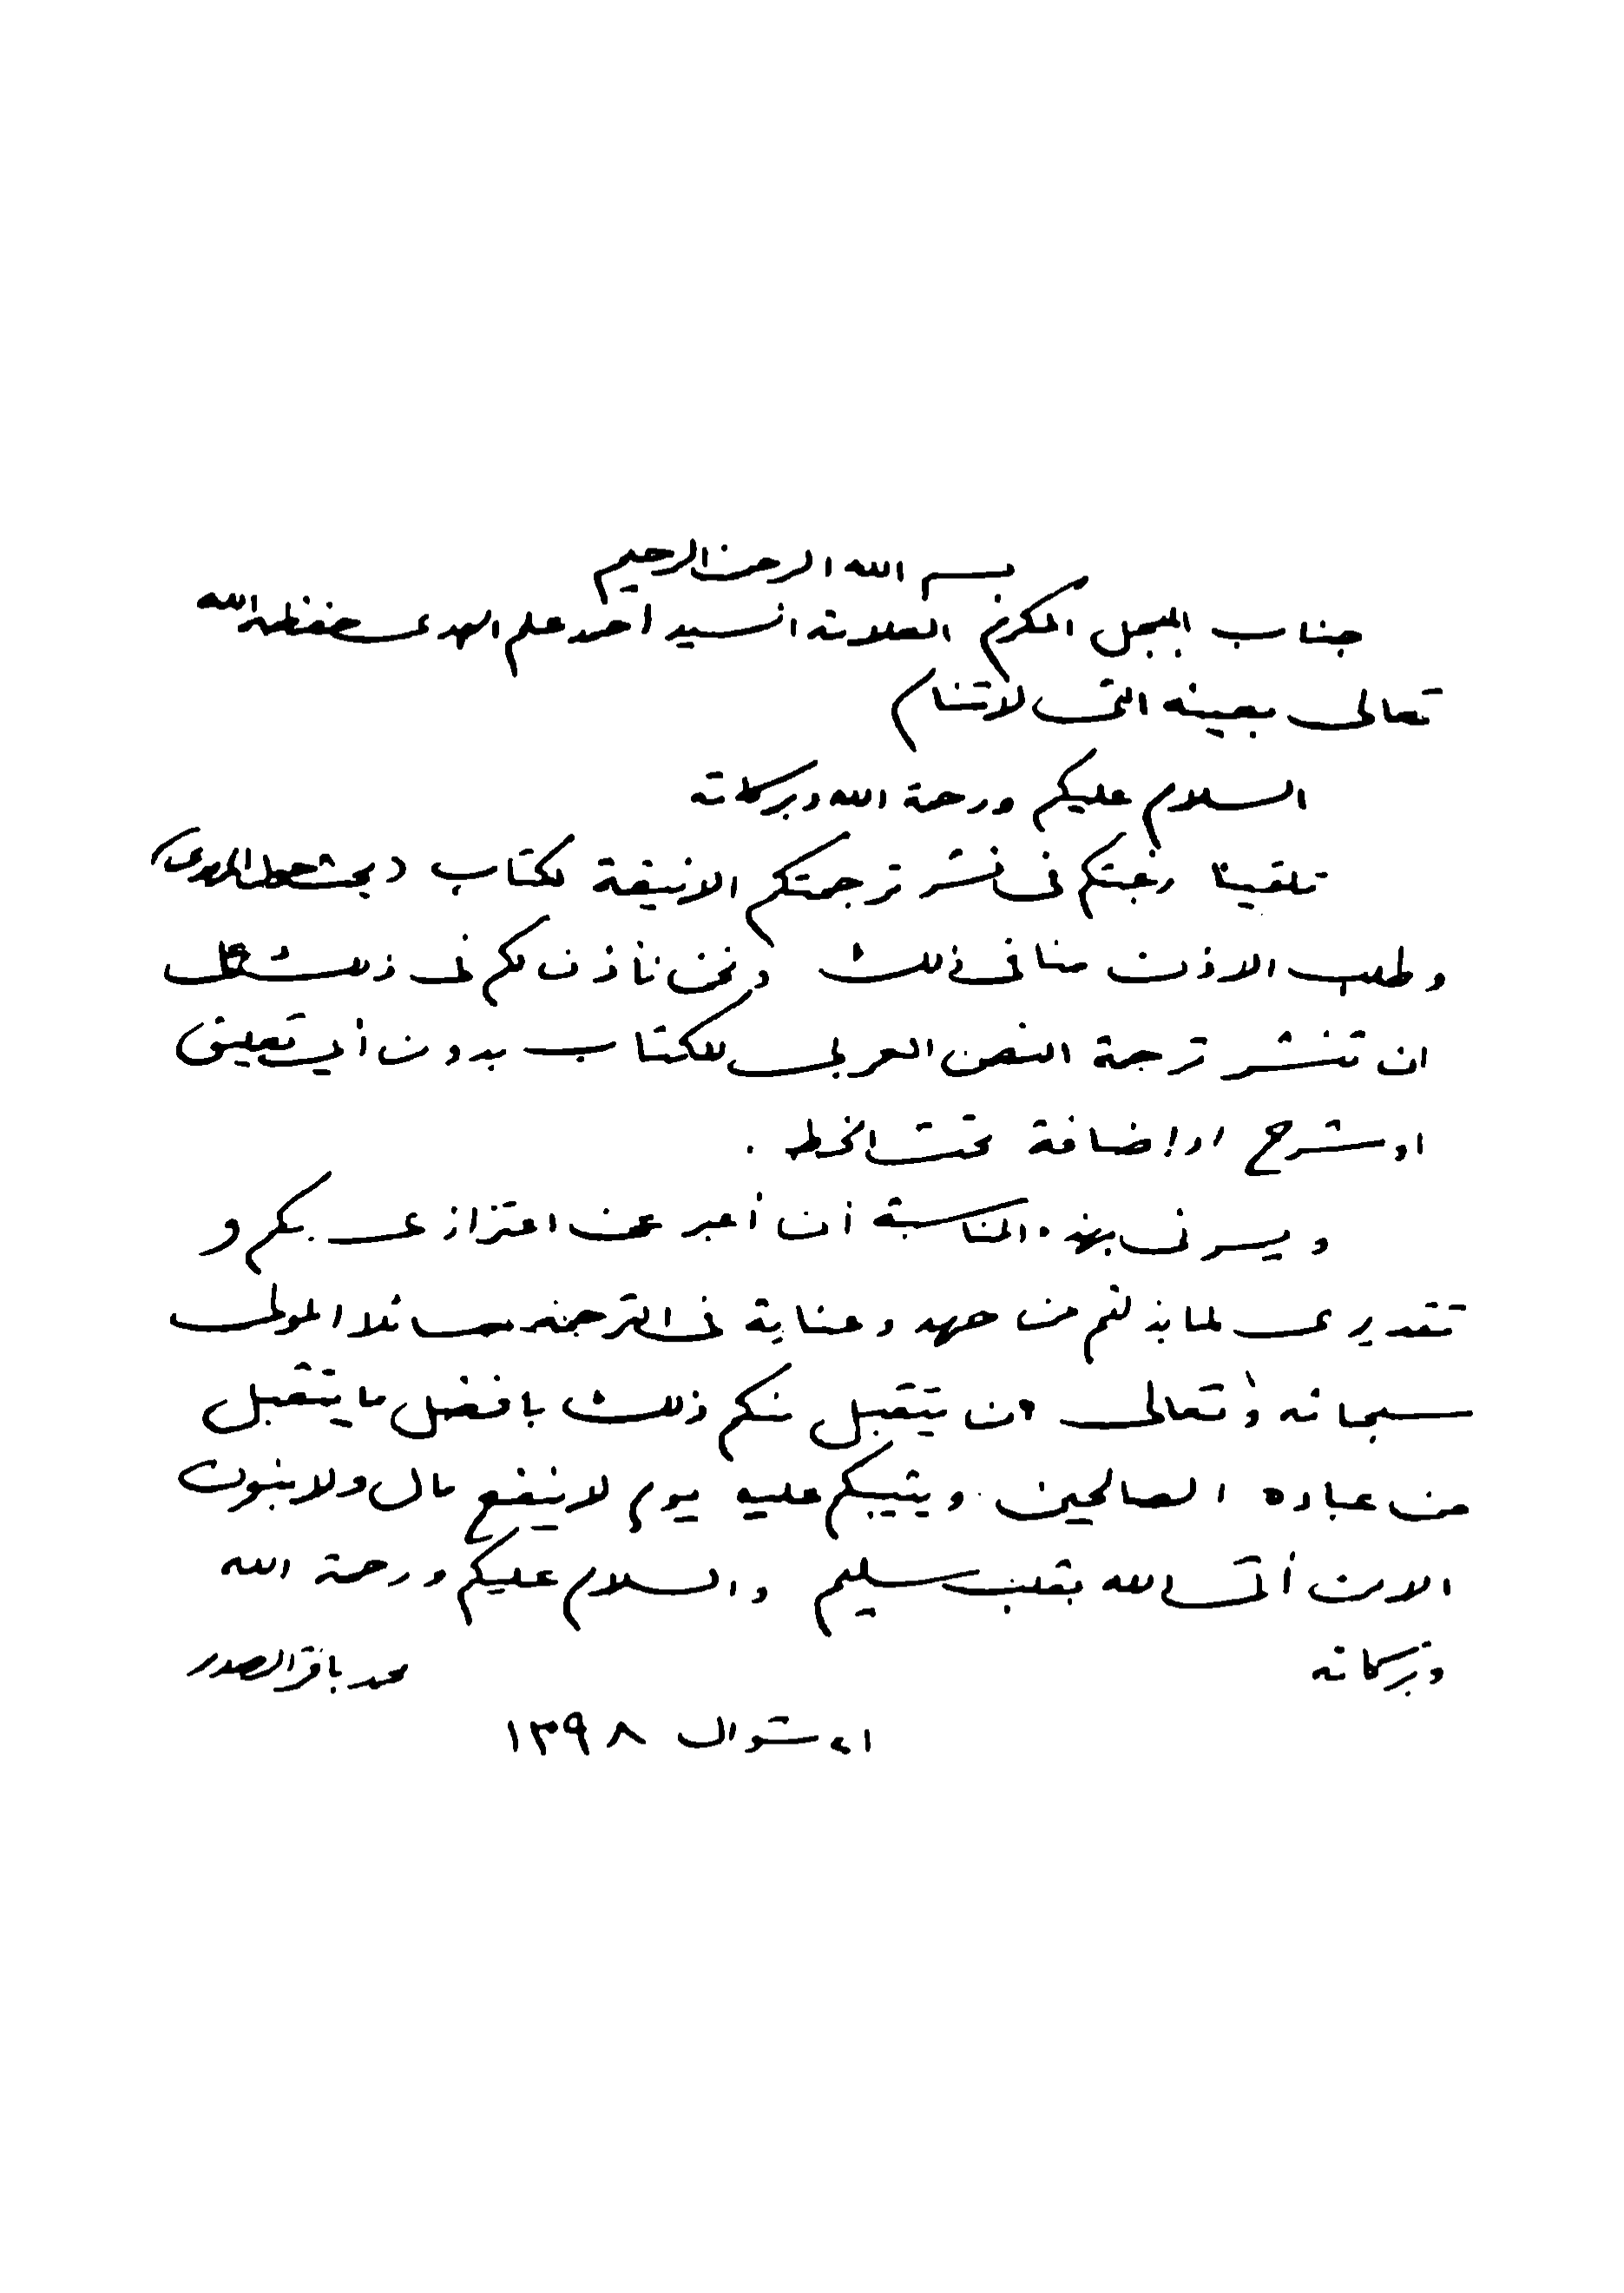 بسم الله الرحمن الرحيم
جناب المبجل المكرم العلامة السيد احمد علم الهدى حفظه الله
تعالى بعينه التي لا تنام
السلام عليكم ورحمة الله وبركاته
تلقينا رغبتكم في نشر ترجمتكم الانيقة لكتاب (بحث حول المهدي)
وطلب الاذن منا في ذلك ونحن نأذن لكم في ذلك على
ان تنشر ترجمة النص العربي للكتاب بدون أي تعليق
او شرح او إضافة تحت الخط .
ويسرني بهذه المناسبة أن أعبر عن اعتزازي بكم و
تقديري لما بذلتم من جهد وعناية في الترجمة سائلا المولى
سبحانه وتعالى أن يتقبل منكم ذلك بافضل ما يتقبل
من عباده الصالحين ويثيبكم عليه يوم لا ينفع مال ولا بنون
الا من أتى الله بقلب سليم والسلام عليكم ورحمة الله
وبركاته محمد باقر الصدر
شوال ١٣٩٨